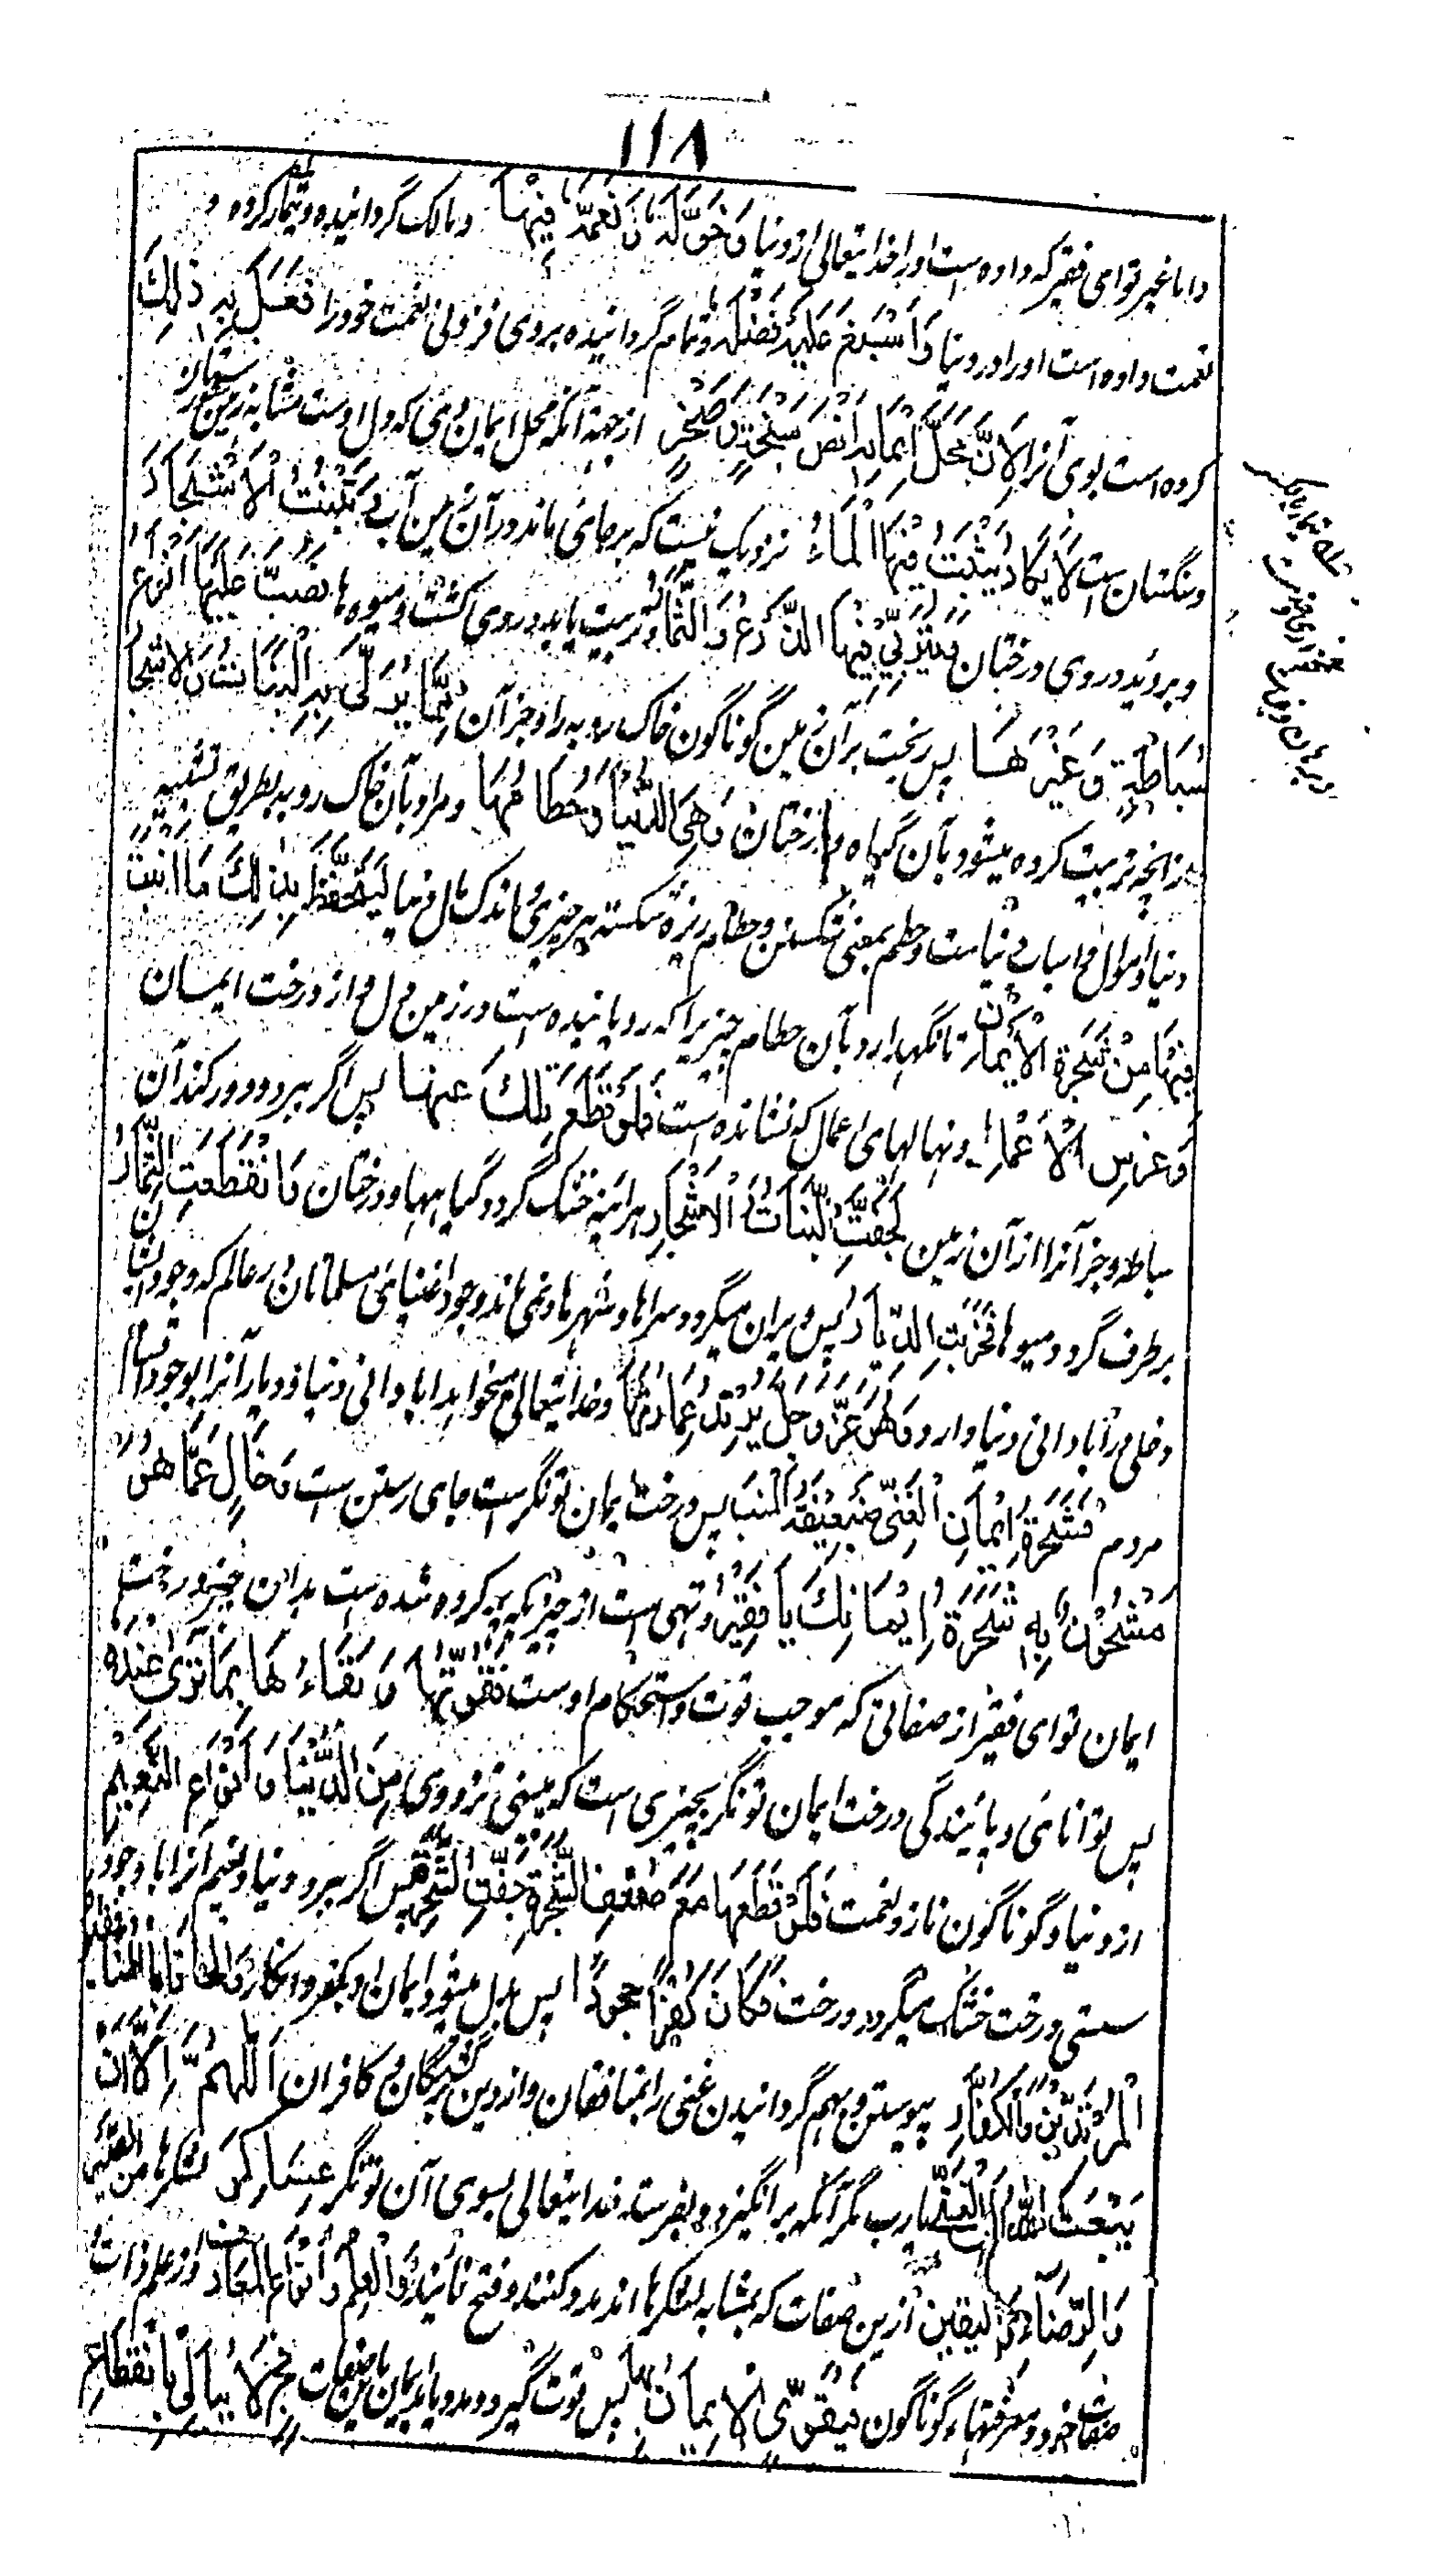 ۱۱۸
داما غیر تو ای فقیر که داده است او را خدایتعالی از دنیا وَخَوَّلَهُ وَنَعَّمَهُ فِیْهَا و مالک گردانیده و تیمار کرده و
نعمت داده است او را در دنیا وَاَسْبَغَ عَلَیْهِ فَضْلَهُ و تمام گردانیده بروی فزونی نعمت خود را فَعَلَ بِهِ ذٰلِكَ
کرده است بوی آنرا لِاَنَّ مَحَلَّ اِیْمَانِهِ اَرْضٌ سَبِخَةٌ وَصَخْرٌ از جهة آنکه محل ایمان وی که دل اوست مشابه زمین شورستان
و سنگستان است لَا یَکَادُ یَثْبُتُ فِیْهَا الْمَاءُ نزدیک نیست که برجای ماند در آن زمین آب وَتَنْبُتُ الْاَشْجَارُ
و بروید در وی درختان وَیَتَرَبّٰی فِیْهَا الزَّرْعُ وَالثِّمَارُ و تربیت یابد در وی کشت و میوه ها فَصَبَّ عَلَیْهَا اَنْوَاعَ
سُبَاطَةٍ وَغَیْرَهَا پس ریخت بر آن زمین گوناگون خاک روبه را و جز آن مِمَّا یُرَبّٰی بِهِ النَّبَاتُ وَالْاَشْجَارُ
از انچه تربیت کرده میشود بآن گیاه و درختان وَهِیَ الدُّنْیَا وَحُطَامُهَا و مراد بآن خاک روبه بطریق تشبیه
دنیا و اموال و اسباب دنیاست و حطم بمعنی شکستن و حطام ریزه شکسته هر چیزی و اندک مال دنیا لِیَحْفَظَ بِذٰلِكَ مَا اَنْبَتَ
فِیْهَا مِنْ شَجَرَةِ الْاِیْمَانِ تا نگهدارد بآن حطام چیزیرا که رویانیده است در زمین دل او از درخت ایمان
وَغَرْسِ الْاَعْمَالِ و نهالهای اعمال که نشانده است فَلَوْ قَطَعَ تِلْكَ عَنْهَا پس اگر ببرد و دور کند آن
سباطه و جز آنرا از آن زمین لَجَفَّتِ النَّبَاتُ وَالْاَشْجَارُ هرآئینه خشک گردد گیاهها و درختان وَانْقَطَعَتِ الثِّمَارُ
برطرف گردد میوها فَخَرِبَتِ الدِّیَارُ پس ویران میگردد سراها و شهرها و نمی ماند وجود اغنیای مسلمانان در عالم که وجود ایشان
دخلی در آبادانی دنیا دارد وَهُوَ عَزَّ وَجَلَّ یُرِیْدُ عِمَارَتَهَا و خدایتعالی میخواهد آبادانی دنیا و دیار آنرا بوجود اقسام
مردم فَشَجَرَةُ اِیْمَانِ الْغَنِیِّ ضَعِیْفَةُ الْمَنْبَتِ پس درخت ایمان تونگر سست جای رستن است وَخَالٍ عَمَّا هُوَ
مَشْحُوْنٌ بِهِ شَجَرَةُ اِیْمَانِكَ یَا فَقِیْرُ و تهی است از چیزیکه پر کرده شده است بدان چیز درخت
ایمان تو ای فقیر از صفاتی که موجب قوت و استحکام اوست فَقُوَّتُهَا وَبَقَاءُهَا بِمَا تَرٰی عِنْدَهُ
پس توانائی و پایندگی درخت ایمان تونگر بچیزی است که میبینی نزد وی مِنَ الدُّنْیَا وَاَنْوَاعِ النَّعِیْمِ
از دنیا و گوناگون ناز و نعمت فَلَوْ قَطَعَهَا مَعَ ضَعْفِ الشَّجَرَةِ جَفَّتِ الشَّجَرَةُ پس اگر ببرد دنیا و نعیم آنرا با وجود
سستی درخت خشک میگردد درخت فَکَانَ کُفْرًا وَجُحُوْدًا پس بدل میشود ایمان او بکفر و انکار وَاِلْحَاقًا بِالْمُنَافِقِیْنَ
الْمُرْتَدِّیْنَ وَالْکُفَّارِ پیوستن و بهم گردانیدن غنی را بمنافقان و از دین برگشتگان و کافران اَللّٰهُمَّ اِلَّا اَنْ
یَبْعَثَ اللّٰهُ اِلَی الْغَنِیِّ یارب مگر آنکه برانگیزد و بفرستد خدایتعالی بسوی آن تونگر عَسَاکِرَ لشکرها مِنَ الصَّبْرِ
وَالرِّضَاءِ وَالْیَقِیْنِ ازین صفات که بمثابه لشکرها اند مدد کنند و فتح نمایند وَالْعِلْمِ وَاَنْوَاعِ الْمَعَارِفِ و از علم ذات
صفات خود و معرفتهای گوناگون فَیَقْوَی الْاِیْمَانُ بِهَا پس قوت گیرد و مدد یابد ایمان باین صفات فَحِیْنَئِذٍ لَا یُبَالِیْ بِانْقِطَاعِ